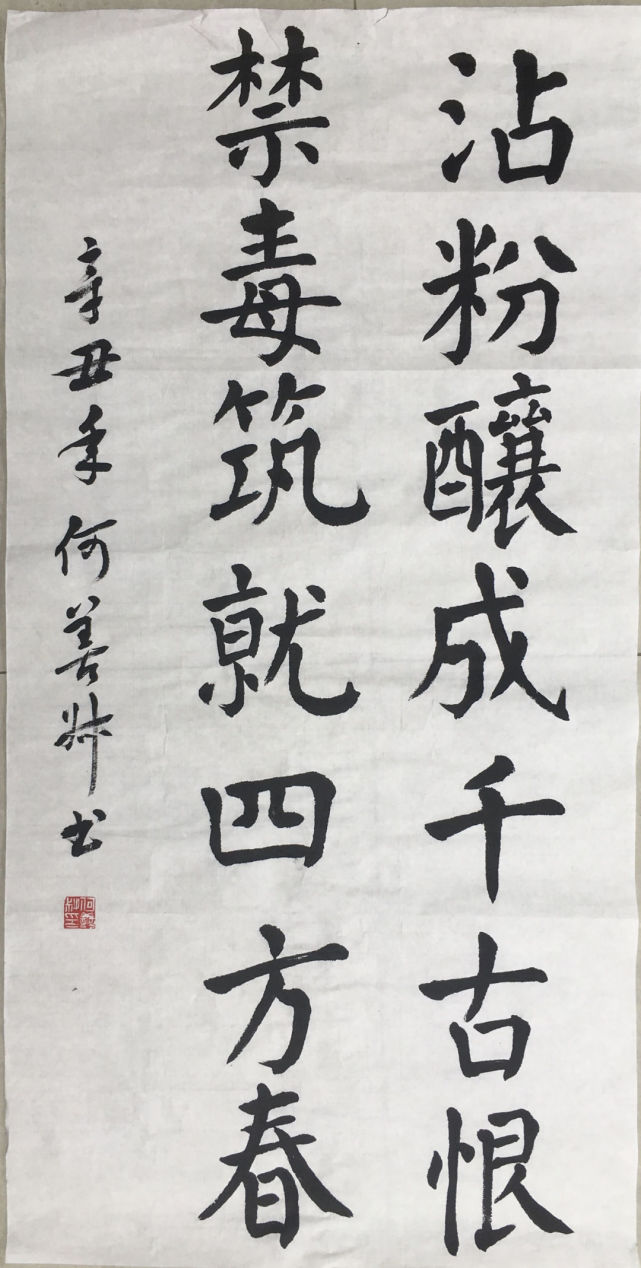 沾粉釀成千古恨
禁毒筑就四方春
辛丑年何善斌书